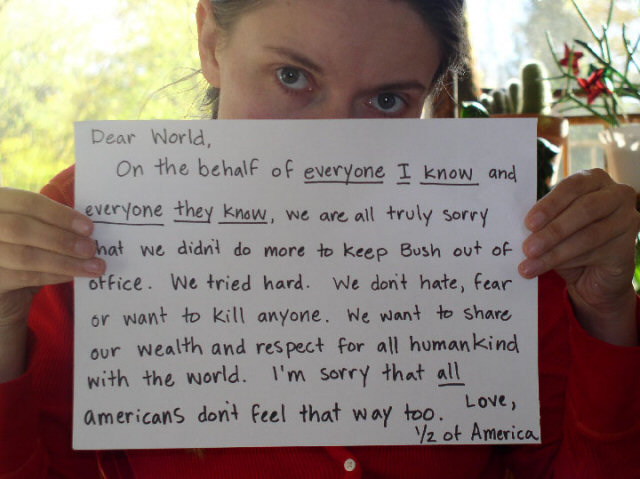 Dear World,
On the behalf of everyone I know and
everyone they know, we are all truly sorry
that we didn't do more to keep Bush out of
office. We tried hard. We don't hate, fear
or want to kill anyone. We want to share
our wealth and respect for all humankind
with the world. I'm sorry that all
americans don't feel that way too. Love,
1/2 of America